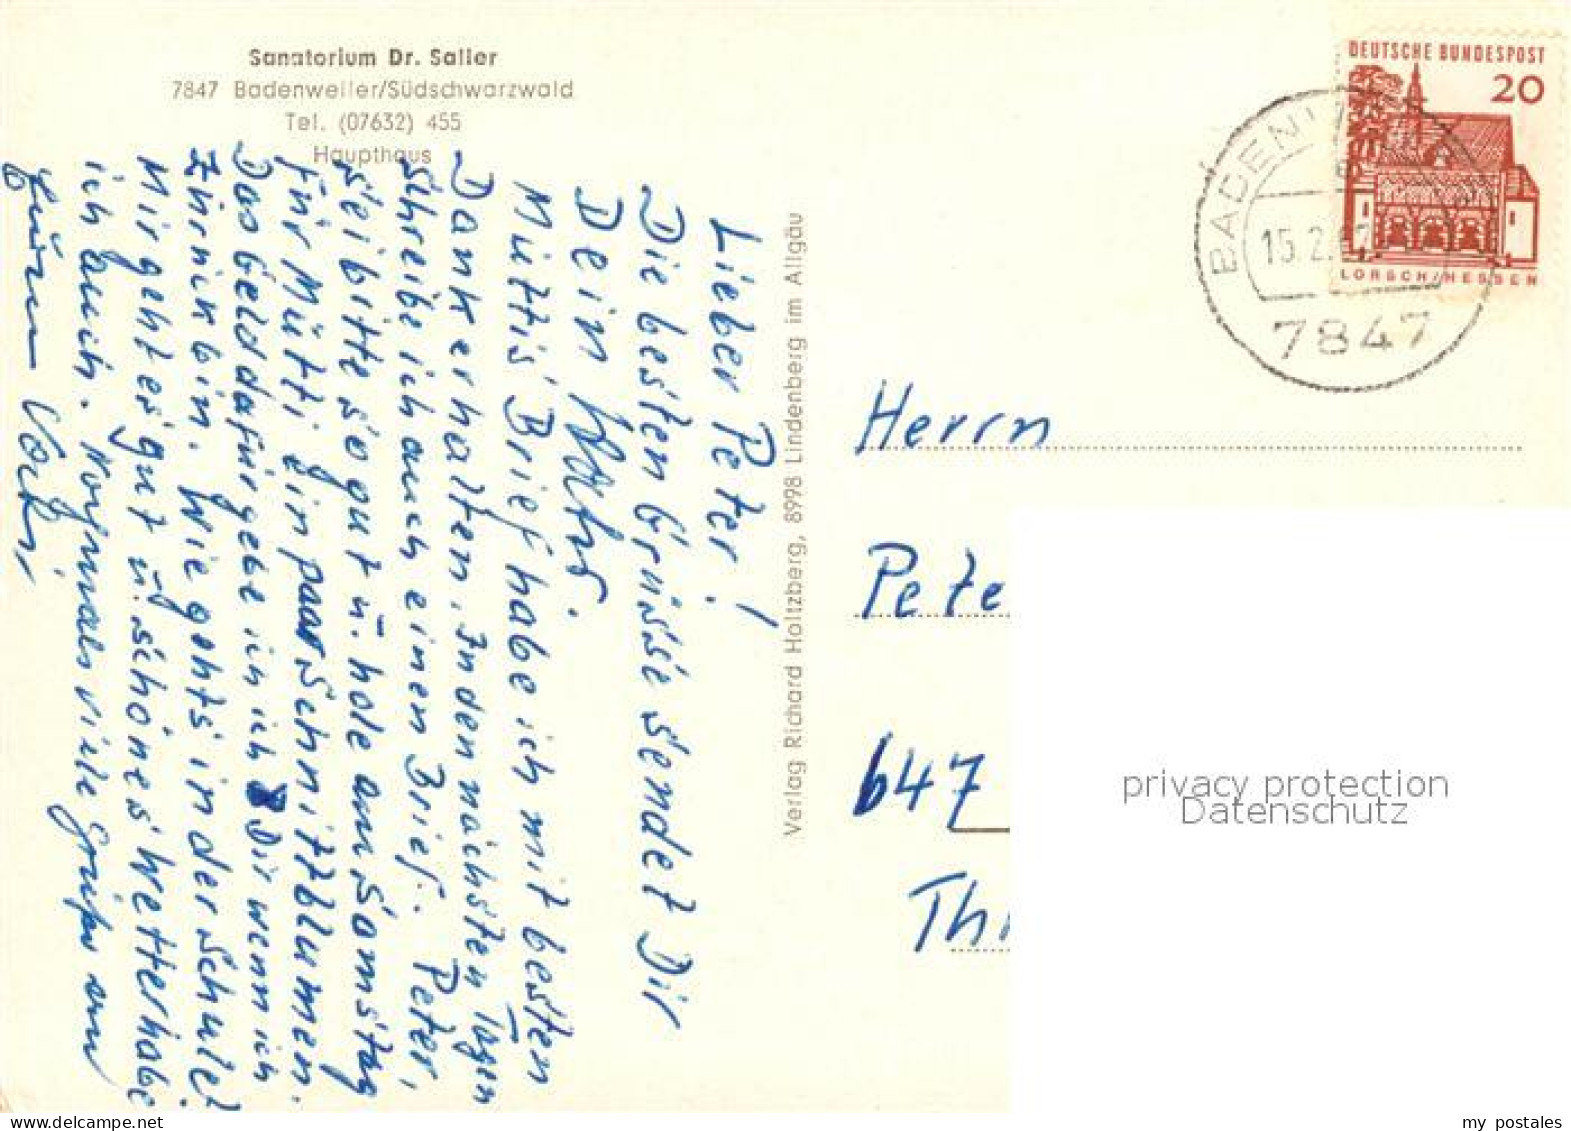 Sanatorium Dr. Saller
7847 Badenweiler/Südschwarzwald
Tel. (07632) 455
Haupthaus
Lieber Peter!
Die besten Grüsse sendet Dir
Dein
Muttis' Brief habe ich mit besten
Dank erhalten. In den nächsten Tagen
schreibe ich auch einen Brief. Peter,
sei bitte so gut u. hole am Samstag
für Mutti ein paar Schnittblumen.
Das Geld dafür gebe ich Dir wenn ich
zürück bin. Wie gehts in der Schule?
Mir geht es gut u. schönes Wetter habe
ich auch. Nochmals viele Grüße an
Verlag Richard Holtzberg, 8998 Lindenberg im Allgäu
DEUTSCHE BUNDESPOST
20
LORSCH/HESSEN
BADENW
15.2.
7847
Herrn
Pete
647
Th
privacy protection
Datenschutz
www.delcampe.net
my_postales